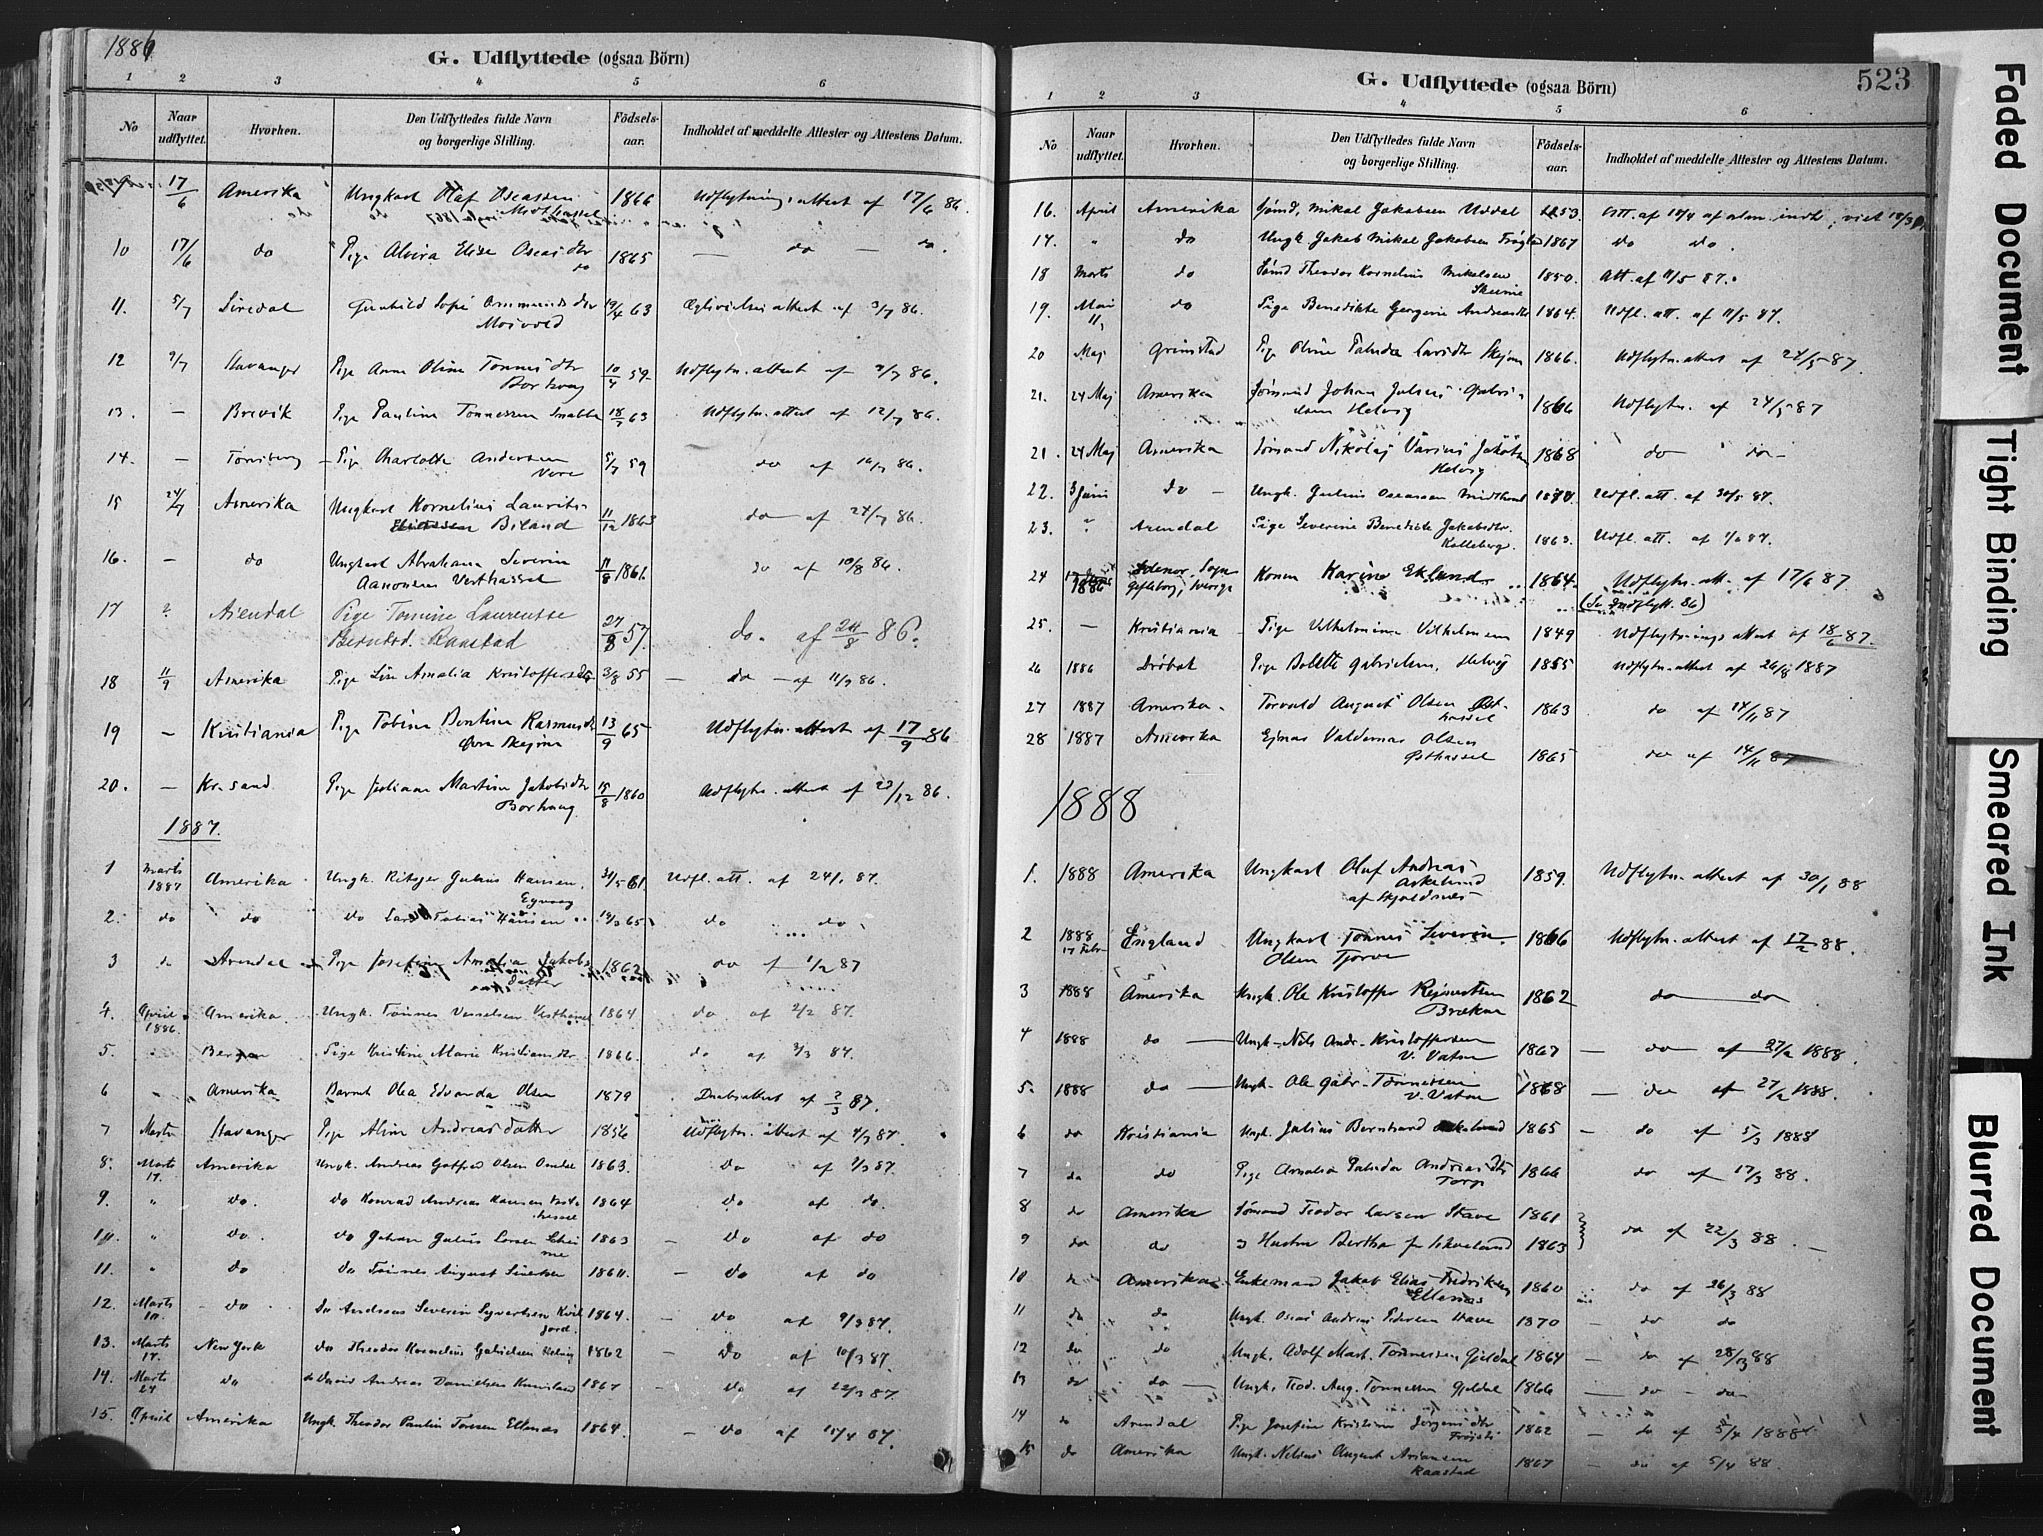 1886
G. Udflyttede (ogsaa Börn)
1 2 3 4 5 6
No Naar udflyttet. Hvorhen. Den Udflyttedes fulde Navn og borgerlige Stilling. Födsels-aar. Indholdet af meddelte Attester og Attestens Datum.
17/6 Amerika Ungkarl Olaf Oseassen 1866 Udflytnings attest af 17/6 86.
10 17/6 do Pige Alvira Elise Oseasdtr 1865 — do — do.
do
11. 5/7 Siredal Gunhild Sofie Ommundsdtr 19/4 63 af 3/7 86.
Moivold
12 7/7 Stavanger Pige Anne Oline Tønnesdtr 10/4 59 Udflytn. attest af 7/7 86.
Borhaug
13. — Brevik Pige Pauline Tønnessen 18/7 63 Udflytn. attest af 12/7 86.
14. — Tønsberg Pige Charlotte Andersen 5/7 59 do af 16/7 86.
Vere
15 24/7 Amerika Ungkarl Kornelius Laurits- 11/12 1863 do af 24/7 86.
Biland
16. — do Ungkarl Abraham Severin 11/8 1861. do af 10/8 86.
Aanonsen Vesthassel
17 ? Arendal Pige Tomine Laurentse 27/8 57. do. af 24/8 86.
Berntsd. Raastad
18 11/9 Amerika Pige Lise Amalia Kristoffersdtr 3/8 55 — do — af 11/9 86.
19 — Kristiania Pige Tobine Bentine Rasmusdtr 13/9 65 Udflytn. attest af 17/9 86
Øvre Skejma
20. — Kr.sand Pige Juliane Martine Jakobsdtr 15/8 1860 Udflytn. attest af 23/12 86.
Borhaug
1887.
1 Marts 1887 Amerika Ungk. Ritzer Julius Hansen, 30/5 61. Udfl. att. af 24/1 87.
Egvaag
2. do do do Lars Tobias Hansen 14/3 65 do do
3 do Arendal Pige Josefine Amalia Jakobs 1862 do af 1/2 87
datter
4. April 1886. Amerika. Ungk. Tønnes Vesselsen Vesthassel 1864 do af 2/2 87.
5. Bergen Pige Kristine Marie Kristiansdtr 1866. do af 3/3 87.
6 " Amerika Barnet Olea Edvarda Olsen 1879 Daabsattest af 2/3 87.
7 Marts Stavanger Pige Aline Andreasdatter 1856 Udflytn. attest af 4/3 87.
8. Marts 17. Amerika Ungk. Andreas Gotfred Olsen 1863. do af 9/3 87.
9. " do. do Konrad Andreas Hansen Vest- 1864 do af do.
hassel
10. " do. do Johan Julius Larsen Skei- 1863 — do af do
me
11. " do do Tønnes August Sivertsen 1860. — do af do
12. Marts do do Andreas Severin Syvertsen Kvil- 1864. — do af 9/3 87.
jord.
13. Marts 17. New York do Theodor Kornelius Gabrielsen Helvig 1862 — do af 10/3 87.
14. Marts 24 do do David Andreas Danielsen 1867 — do af 22/3 87.
15. April Amerika Ungk. Theodor Paulin Tønnesen Ellenæs 1864. — do af 15/4 87.
523
G. Udflyttede (ogsaa Börn)
1 2 3 4 5 6
No Naar udflyttet. Hvorhen. Den Udflyttedes fulde Navn og borgerlige Stilling. Födsels-aar. Indholdet af meddelte Attester og Attestens Datum.
16. April Amerika Sømd. Mikal Jakobsen Uddal 1853. Att. af 10/4
17. " do Ungk Jakob Mikal Jakobsen 1867 do do.
18 Marts do Sømd Theodor Kornelius Mikelsen 1850. Att. af 11/5 87.
Skeime
19. Mai 11 do Pige Benedikte Georgine Andreasdtr 1864. Udfl. att. af 11/5 87.
20 Maj Grimstad Pige Oline Larsdtr 1866. Udflytn. attest af 24/5 87.
21. 24 Maj Amerika Sømand Johan Julius Gabri- 1866 Udflytn. af 24/5 87
elsen Helvig
21. 24 Maj Amerika Sømand Nikolaj Jakobsen 1868 do do
Helvig
22. 3 Juni do — Ungk. Julius Oseassen Midthassel Udfl. att. af 30/5 87.
23. " Arendal Pige Severine Benedicte Jakobsdtr. 1863. Udfl. att. af 1/6 87.
Kalleberg.
24 1886 Sogn Gefleborg, Sverige Konen Karine Eklund 1864. Udflytn. att. af 17/6 87
(Se Indflytt. 86)
25. — Kristiania Pige Vilhelmine Vilhelmsen 1849 Udflytnings attest af 18/6 87.
26 1886 Drøbak Pige Bolette Gabrielsen, Helvig 1855 Udflytn. attest af 26/8 1887
27 1887 Amerika. Torvald August Olsen Øst- 1863 do af 14/11 87
hassel
28 1887 Amerika Ejnar Valdemar Olsen 1865 do af 14/11 87
Østhassel
1888
1. 1888 Amerika Ungkarl Oluf Andreas 1859. Udflytn. attest af 30/1 88
Askelund
af Skjoldnæs
2 1888 17 Febr England Ungkarl Tønnes Severin 1866 Udflytn. attest af 17/2 88.
Olsen Tjørve
3 1888 Amerika Ungk. Ole Kristoffer Reinertsen 1862 do do
Brækne
4 1888 do — Ungk. Nils Andr. Kristoffersen 1867 — do af 27/2 1888.
V. Vatne
5. 1888 do — Ungk. Ole Gabr. Tønnessen 1868 — do af 27/2 1888.
V. Vatne
6 do Kristiania Ungk. Julius Bernhard Askelund 1865 — do af 5/3 1888
7 do do Pige Amalia Andreasdtr 1866 do af 17/3 88.
Torp
8 do Amerika Sømand Teodor Larsen Stave 1861 do af 22/3 88.
9 do do Hustru Bertha 1863
10 do Amerika Enkemand Jakob Elias Fredriksen 1860 do af 26/3 88
Ellenæs
11 do do Ungk. Oseas Andreas Pedersen Stave 1870 — do do
12 do do Ungk. Adolf Mart. Tønnessen Gjeldal 1864 — do af 28/3 88
13 do do — Ungk. Teod. Aug. Tønnessen Gjeldal 1866 — do — do
14 do Arendal Pige Josefine Kristine Jørgensdtr 1862 — do af 5/4 1888
15 do Amerika Ungk. Nelsius August Arianssen 1867 — do af 5/4 88.
Raastad
Faded Document
Tight Binding
Smeared Ink
Blurred Document